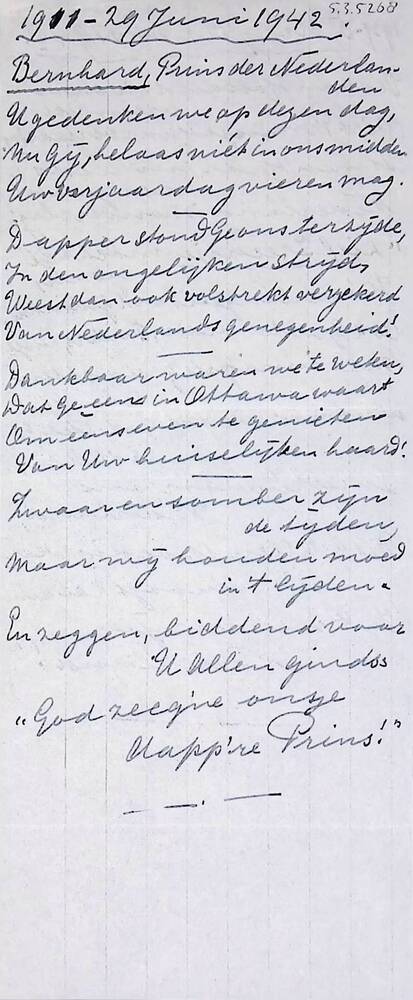 5.3.5268
1911 - 29 Juni 1942.
Bernhard, Prins der Nederlan-
den
U gedenken we op dezen dag,
Nu Gij, helaas niet in ons midden
Uw verjaardag vieren mag.
Dapper stond Ge ons terzijde,
In den ongelijken strijd,
Weest dan ook volstrekt verzekerd
Van Nederlands genegenheid!
Dankbaar waren we te weten,
Dat Ge eens in Ottawa waart
Om eens even te genieten
Van Uw huiselijken haard!
Zwaar en somber zijn
de tijden,
Maar wij houden moed
in 't lijden.
En zeggen, biddend voor
U Allen ginds:
"God zeeg'ne onze
dapp're Prins!"